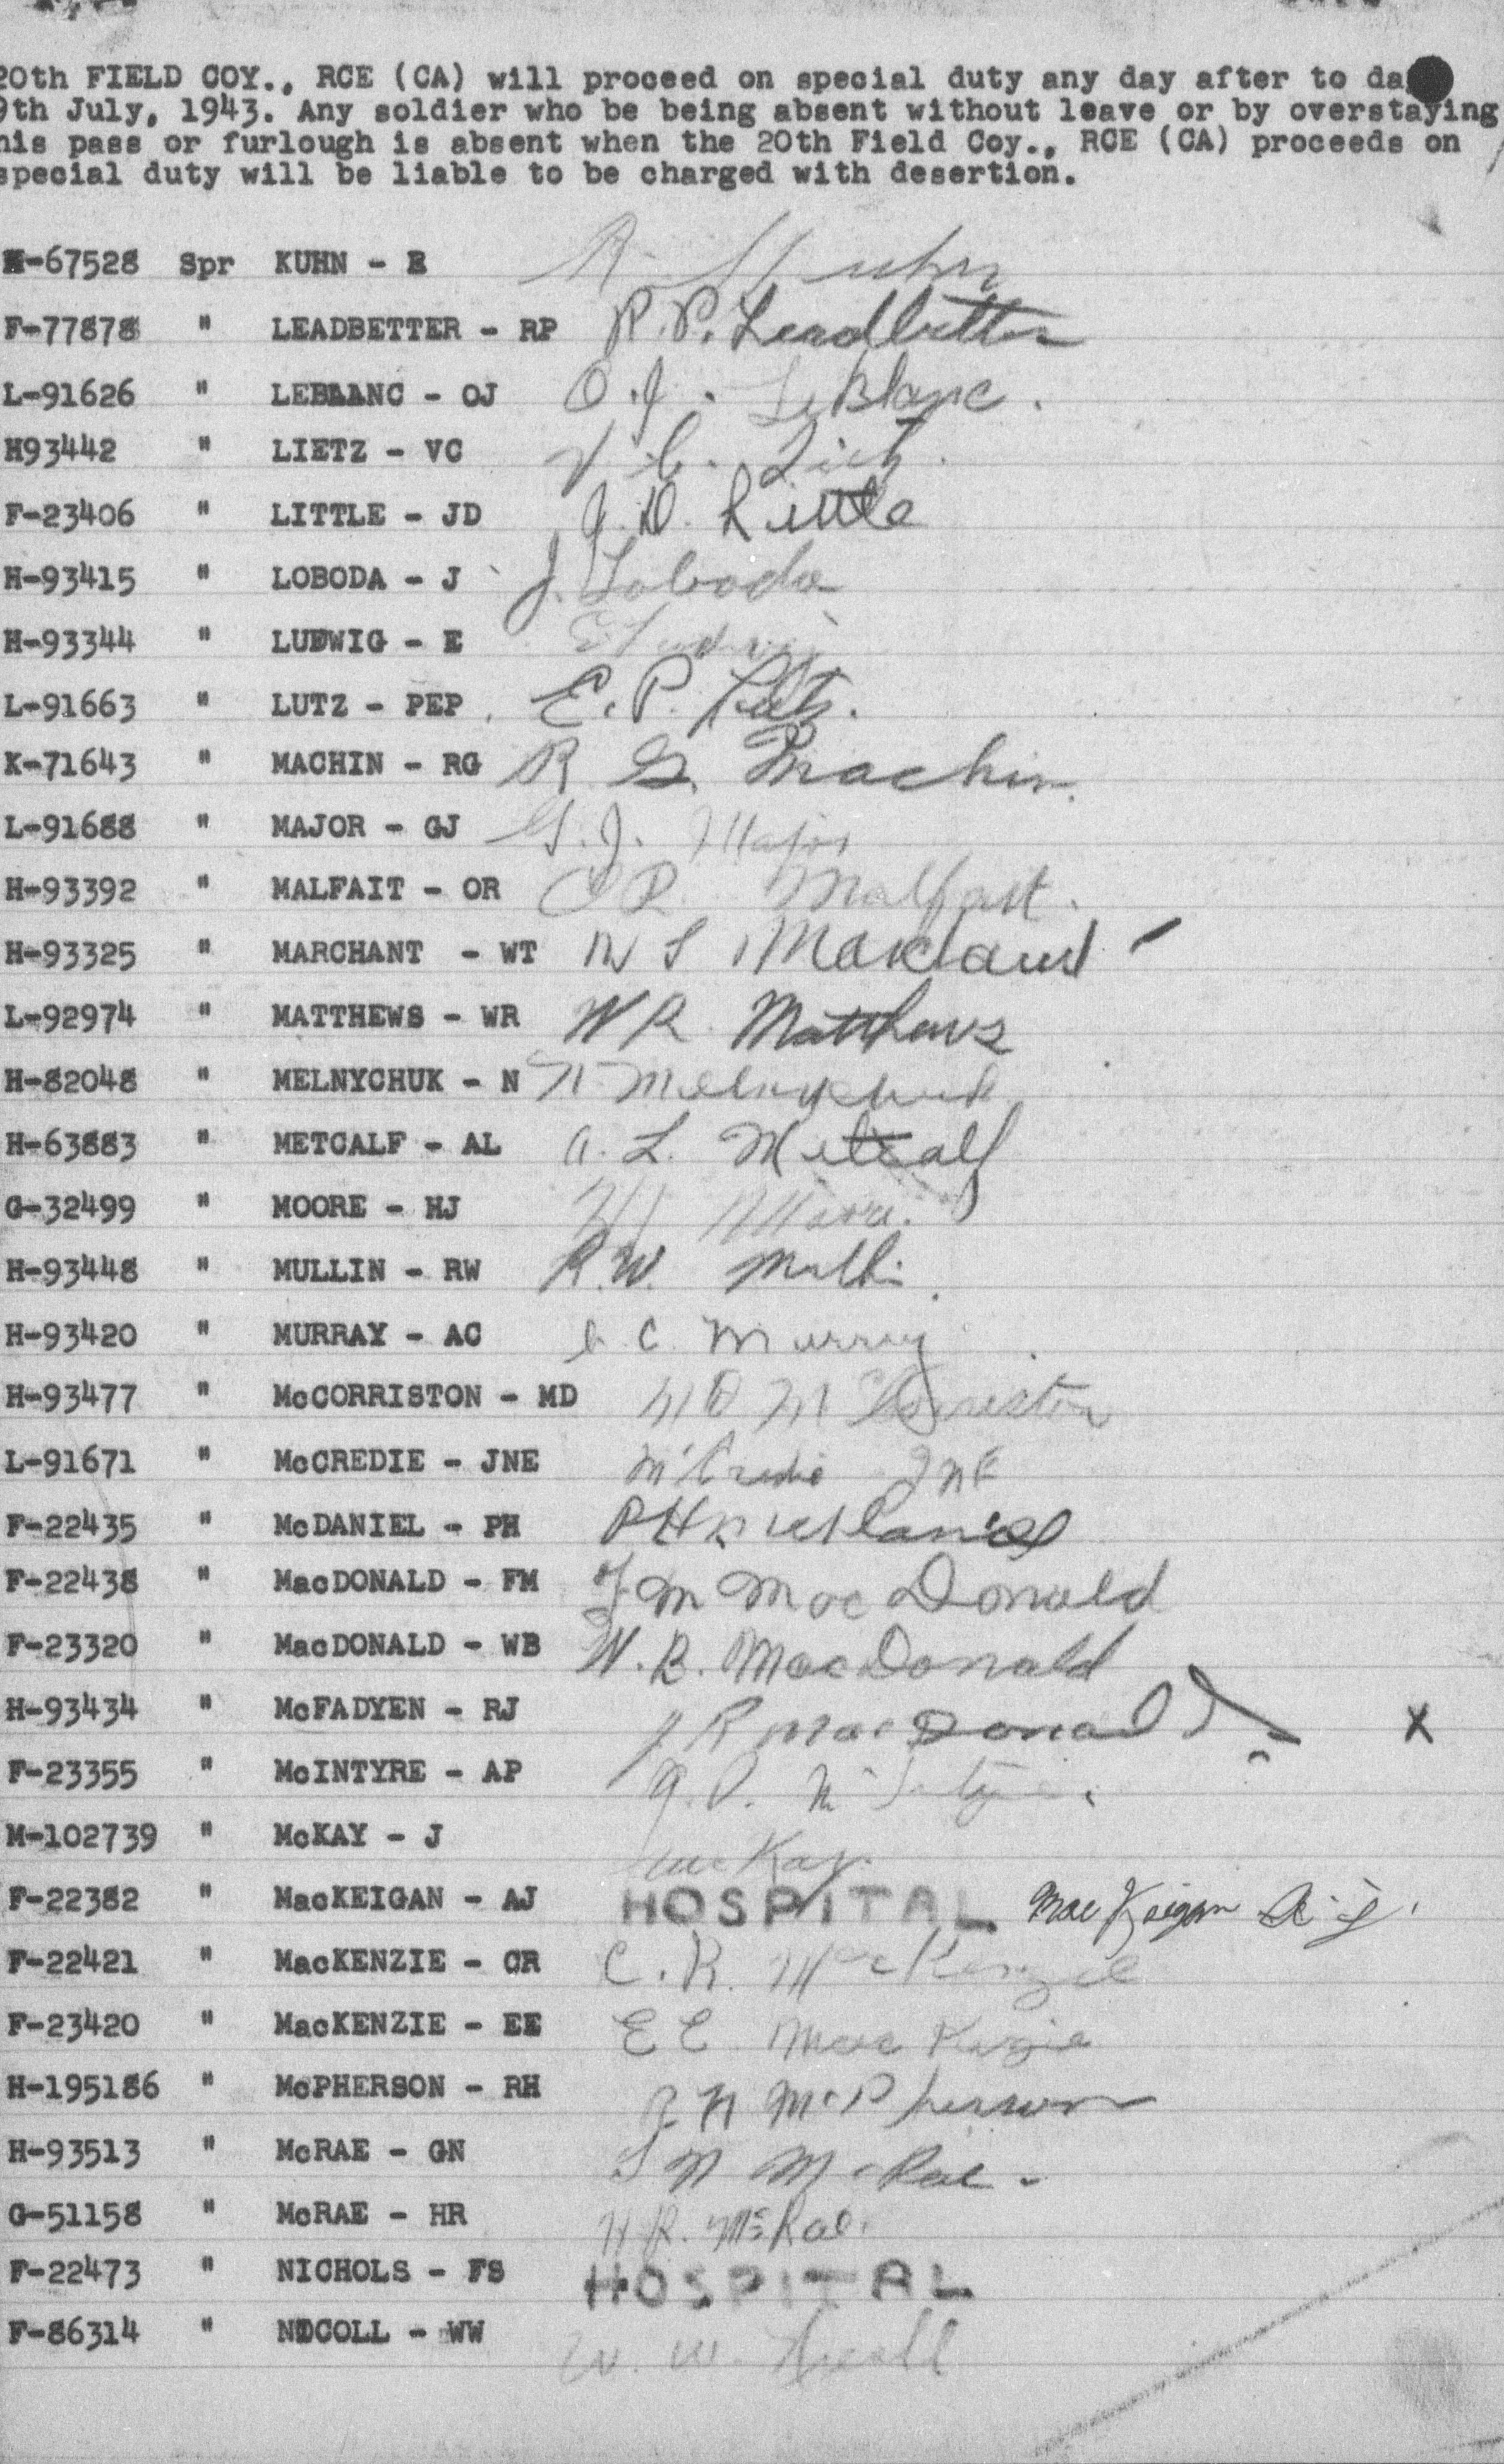 20th FIELD COY., RCE (CA) will proceed on special duty any day after to da
9th July, 1943. Any soldier who be being absent without leave or by overstaying
his pass or furlough is absent when the 20th Field Coy., RCE (CA) proceeds on
special duty will be liable to be charged with desertion.
-67528 Spr KUHN - Kuhn
F-77878 " LEADBETTER - RP R.P. Leadbetter
L-91626 " LEBLANC - OJ O.J. LeBlanc.
H93442 " LIETZ - VC V. C. Lietz.
F-23406 " LITTLE - JD J. D. Little
H-93415 " LOBODA - J J. Loboda
H-93344 " LUDWIG - E E Ludwig
L-91663 " LUTZ - PEP E. P. Lutz.
K-71643 " MACHIN - RG R G. Machin.
L-91688 " MAJOR - GJ G. J. Major
H-93392 " MALFAIT - OR O R. Malfait.
H-93325 " MARCHANT - WT
L-92974 " MATTHEWS - WR W R Matthews
H-82048 " MELNYCHUK - N N. Melnychuk
H-63883 " METCALF - AL A. L. Metcalf
G-32499 " MOORE - HJ HJ Moore.
H-93448 " MULLIN - RW R.W. Mullin
H-93420 " MURRAY - AC A. C. Murray
H-93477 " McCORRISTON - MD M D McCorriston
L-91671 " McCREDIE - JNE McCredie JNE
F-22435 " McDANIEL - PH PH McDaniel
F-22438 " MacDONALD - FM F M MacDonald
F-23320 " MacDONALD - WB W. B. MacDonald
H-93434 " McFADYEN - RJ J R MacDonald X
F-23355 " McINTYRE - AP A. P. McIntyre.
M-102739 " McKAY - J McKay.
F-22382 " MacKEIGAN - AJ HOSPITAL MacKeigan A. J.
F-22421 " MacKENZIE - CR C. R. MacKenzie
F-23420 " MacKENZIE - EE EE MacKenzie
H-195186 " McPHERSON - RH R H McPherson
H-93513 " McRAE - GN G N McRae -
G-51158 " McRAE - HR H R. McRae.
F-22473 " NICHOLS - FS HOSPITAL
F-86314 " NICOLL - WW W. W. Nicoll